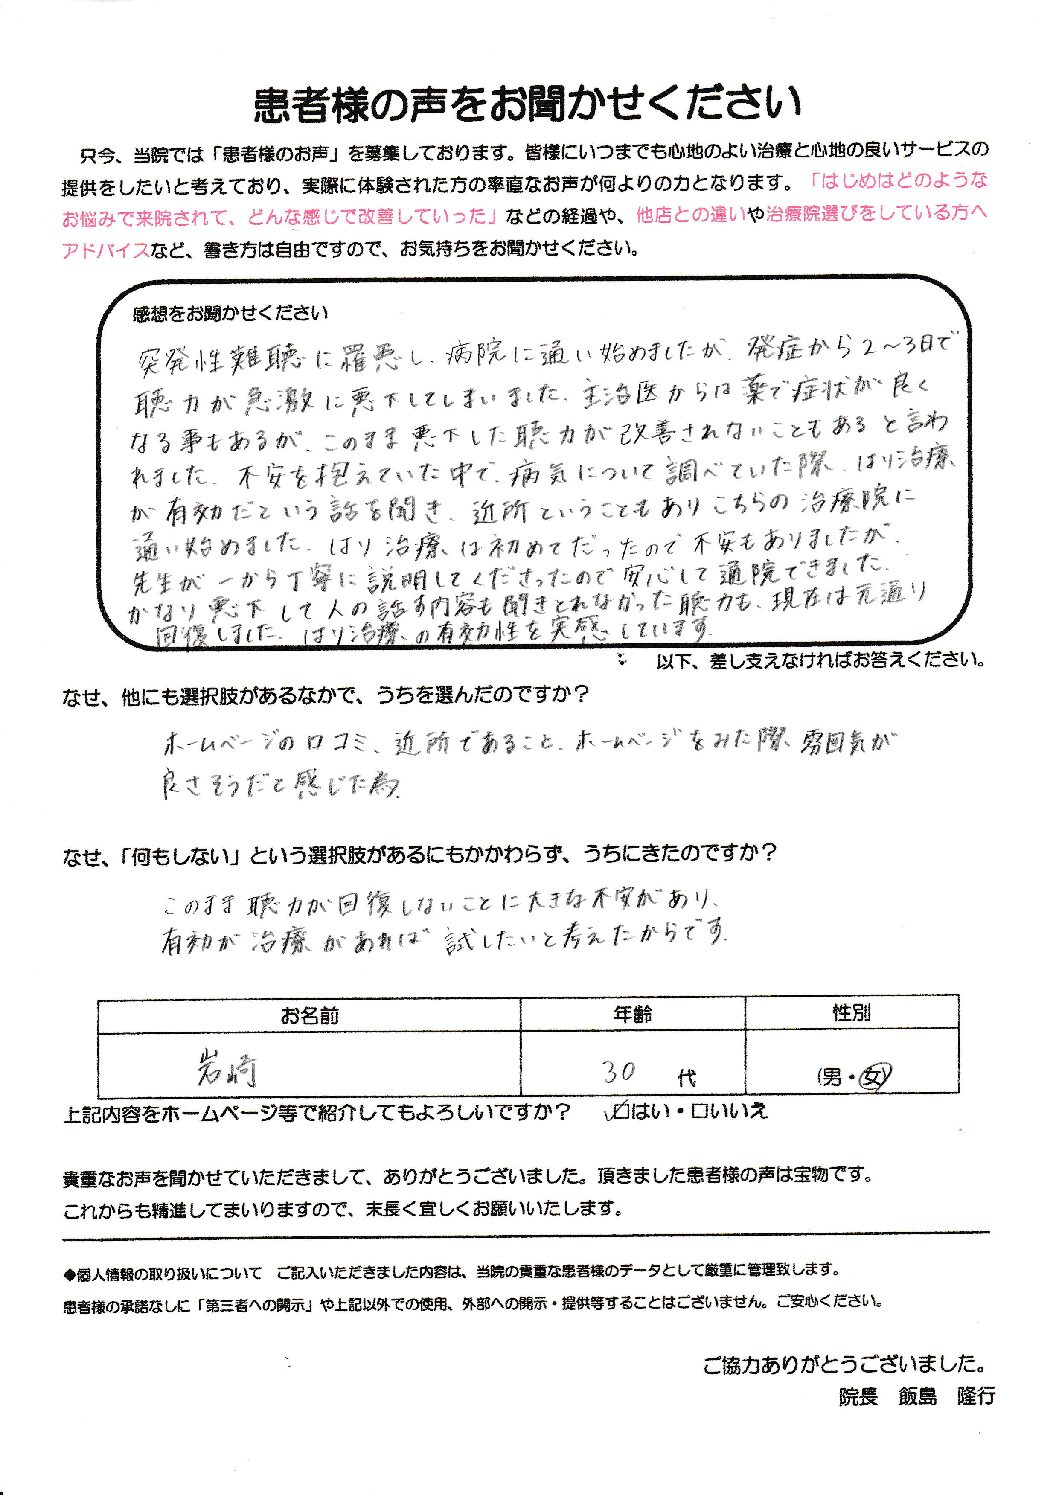 患者様の声をお聞かせください
只今、当院では「患者様のお声」を募集しております。皆様にいつまでも心地のよい治療と心地の良いサービスの
提供をしたいと考えており、実際に体験された方の率直なお声が何よりの力となります。「はじめはどのような
お悩みで来院されて、どんな感じで改善していった」などの経過や、他店との違いや治療院選びをしている方へ
アドバイスなど、書き方は自由ですので、お気持ちをお聞かせください。
感想をお聞かせください
突発性難聴に罹患し、病院に通い始めましたが、発症から2〜3日で
聴力が急激に悪下してしまいました。主治医からは薬で症状が良く
なる事もあるが、このまま悪下した聴力が改善されないこともあると言わ
れました。不安を抱えていた中で、病気について調べていた際、はり治療
が有効だという話を聞き、近所ということもありこちらの治療院に
通い始めました。はり治療は初めてだったので不安もありましたが、
先生が一から丁寧に説明してくださったので安心して通院できました。
かなり悪下して人の話す内容も聞きとれなかった聴力も、現在は元通り
回復しました。はり治療の有効性を実感しています。
以下、差し支えなければお答えください。
なぜ、他にも選択肢があるなかで、うちを選んだのですか？
ホームページの口コミ、近所であること、ホームページをみた際、雰囲気が
良さそうだと感じた為。
なぜ、「何もしない」という選択肢があるにもかかわらず、うちにきたのですか？
このまま聴力が回復しないことに大きな不安があり、
有効が治療があれば試したいと考えたからです。
お名前 年齢 性別
岩崎 30 代 (男・女)
上記内容をホームページ等で紹介してもよろしいですか？ ☑はい・□いいえ
貴重なお声を聞かせていただきまして、ありがとうございました。頂きました患者様の声は宝物です。
これからも精進してまいりますので、末長く宜しくお願いいたします。
◆個人情報の取り扱いについて ご記入いただきました内容は、当院の貴重な患者様のデータとして厳重に管理致します。
患者様の承諾なしに「第三者への開示」や上記以外での使用、外部への開示・提供等することはございません。ご安心ください。
ご協力ありがとうございました。
院長 飯島 隆行